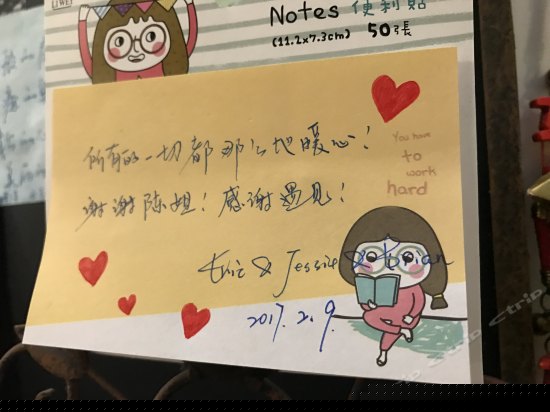 LIWEI
Notes 便利貼
(11.2x7.3cm) 50張
所有的一切都那么地暖心!
谢谢陈姐! 感谢遇见!
You have
to
work
hard
Eric & Jessie & Brian
2017.2.9.